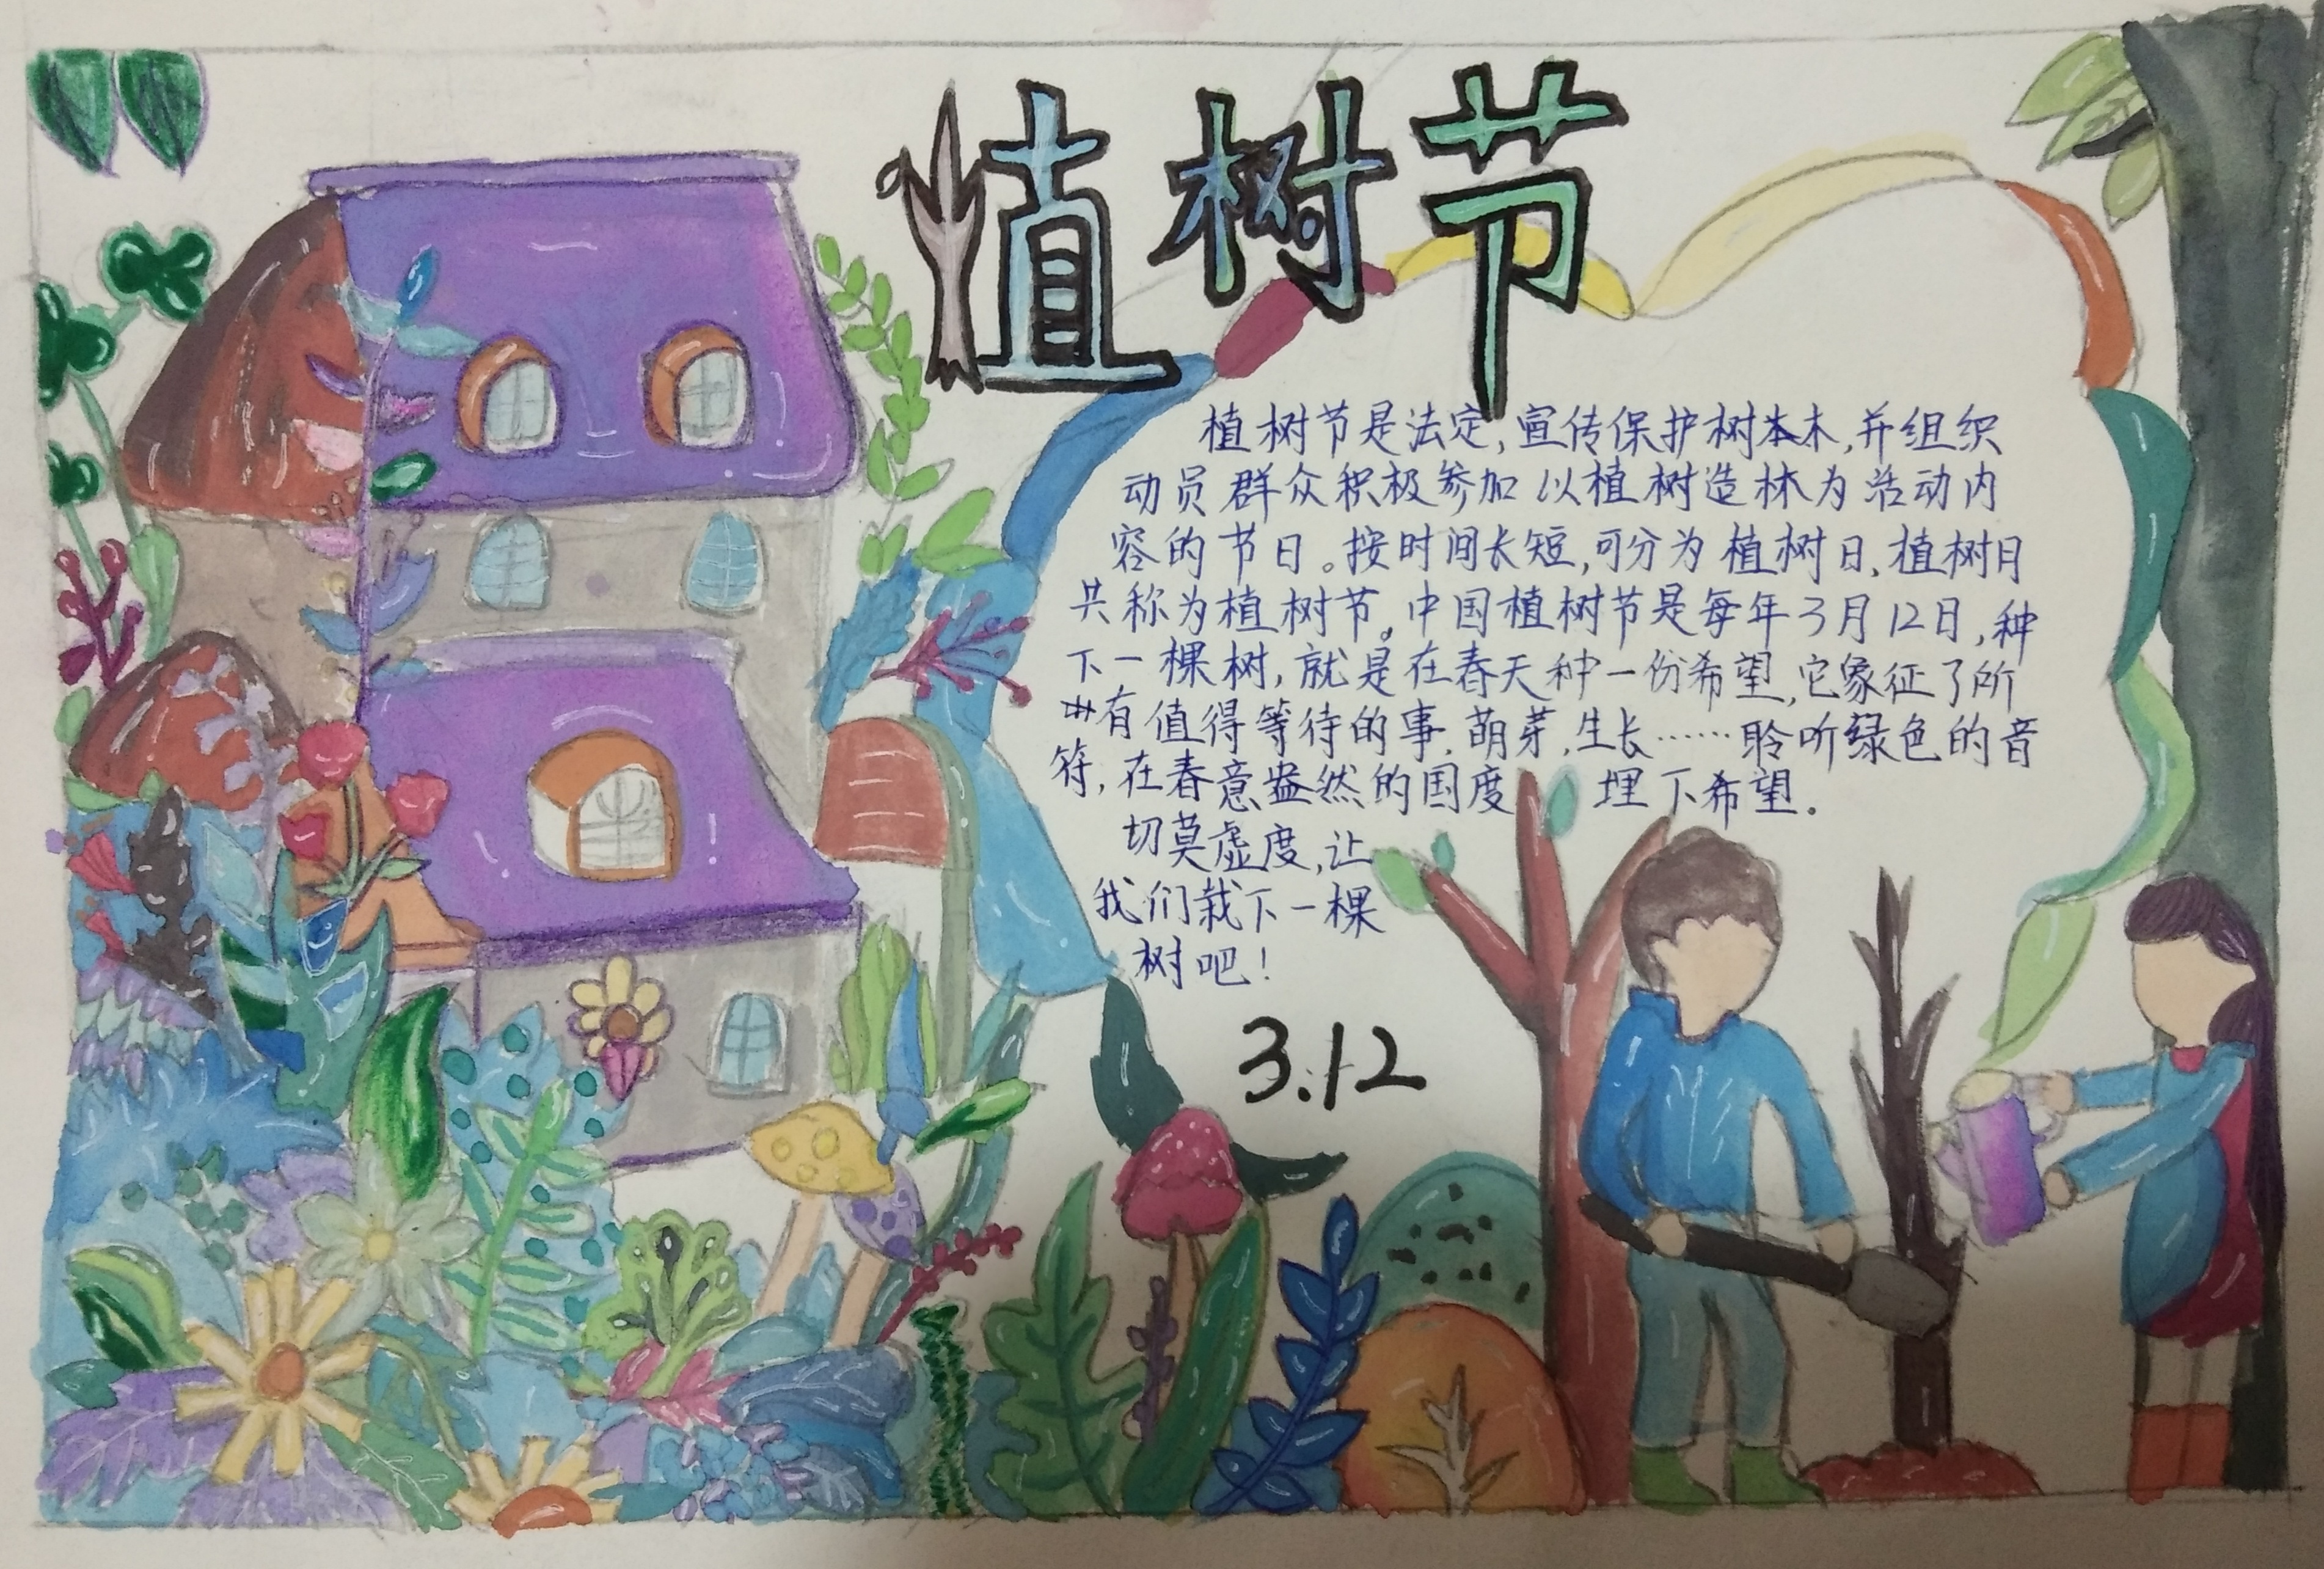 植树节
植树节是法定,宣传保护树本木,并组织
动员群众积极参加以植树造林为活动内
容的节日。按时间长短,可分为植树日、植树月
共称为植树节。中国植树节是每年3月12日,种
下一棵树,就是在春天种一份希望,它象征了所
有值得等待的事、萌芽、生长……聆听绿色的音
符,在春意盎然的国度 埋下希望.
切莫虚度,让
我们栽下一棵
树吧!
3.12